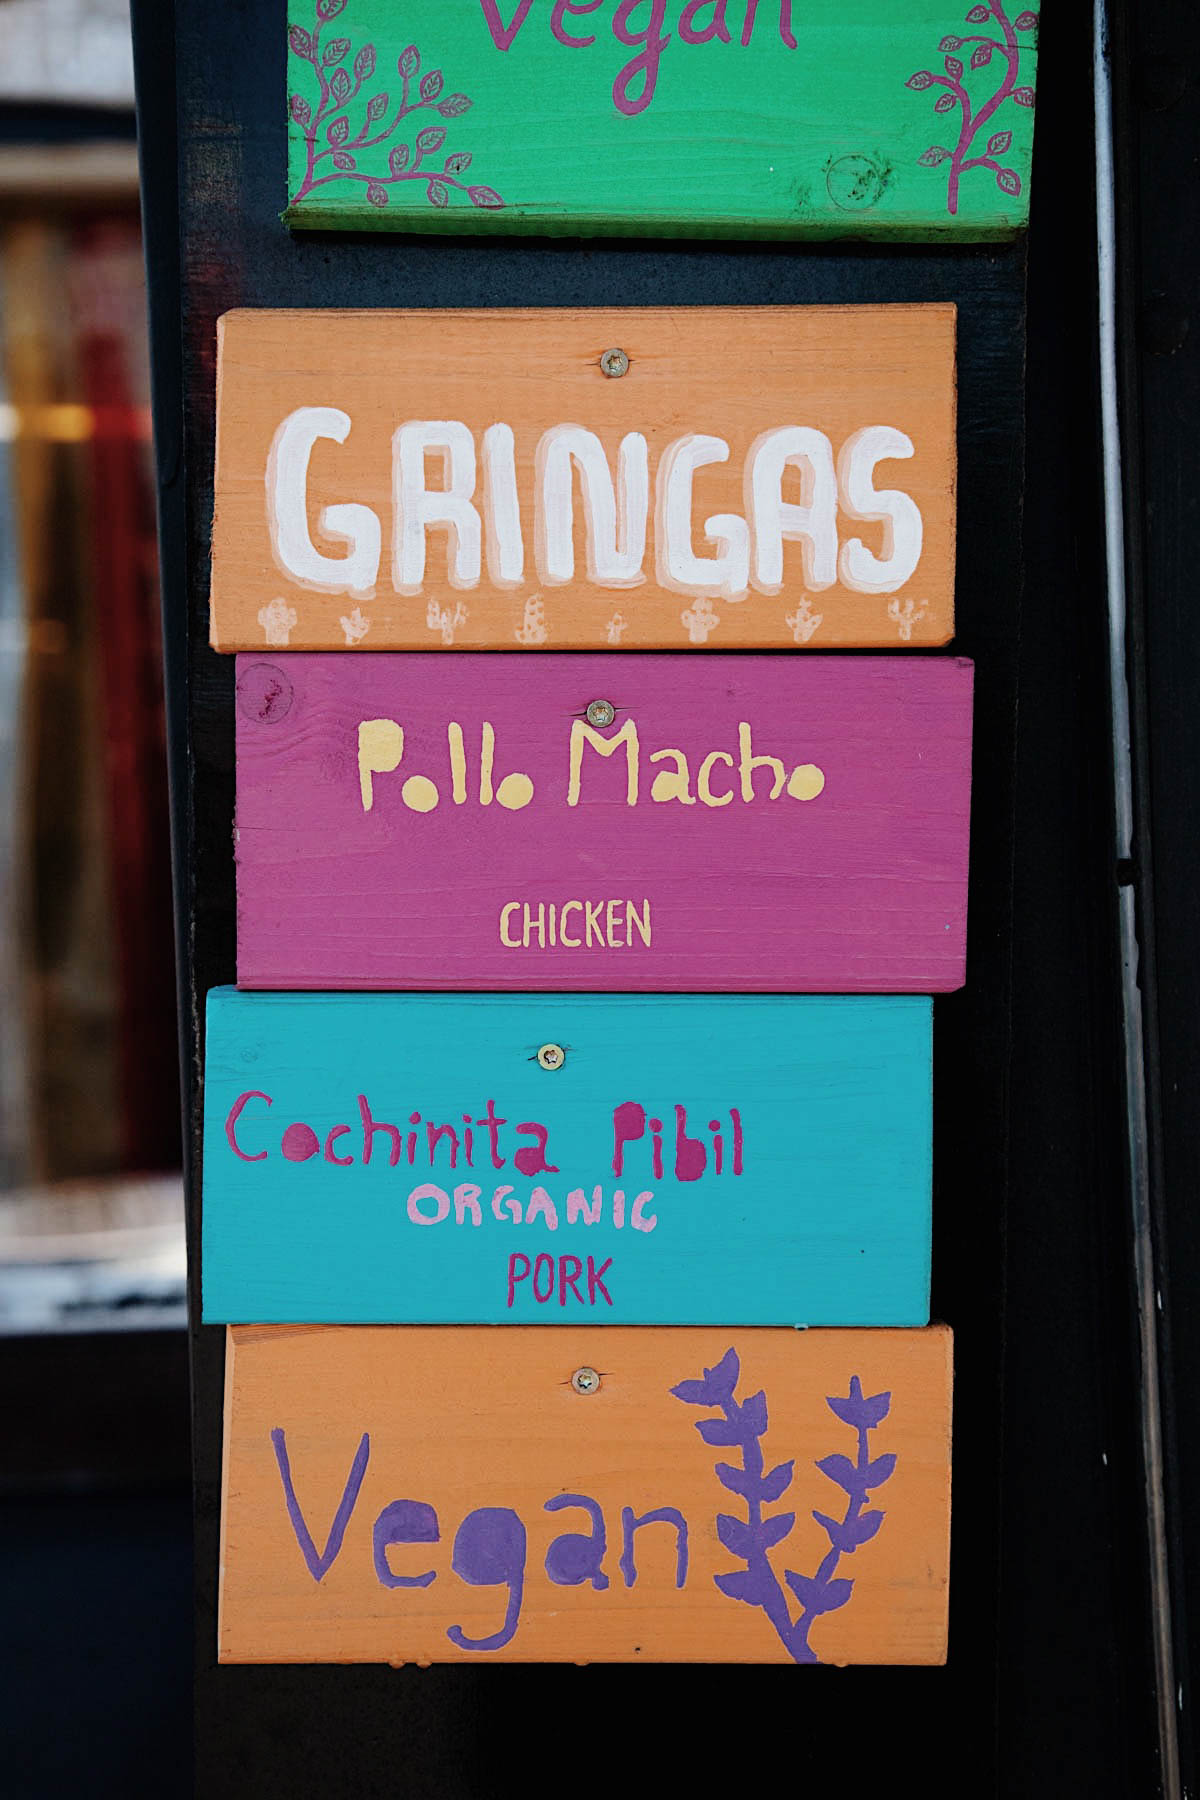 Vegan
GRINGAS
Pollo Macho
CHICKEN
Cochinita Pibil
ORGANIC
PORK
Vegan